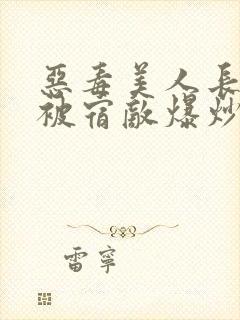 惡毒美人長
被宿敵爆炒
雷寧